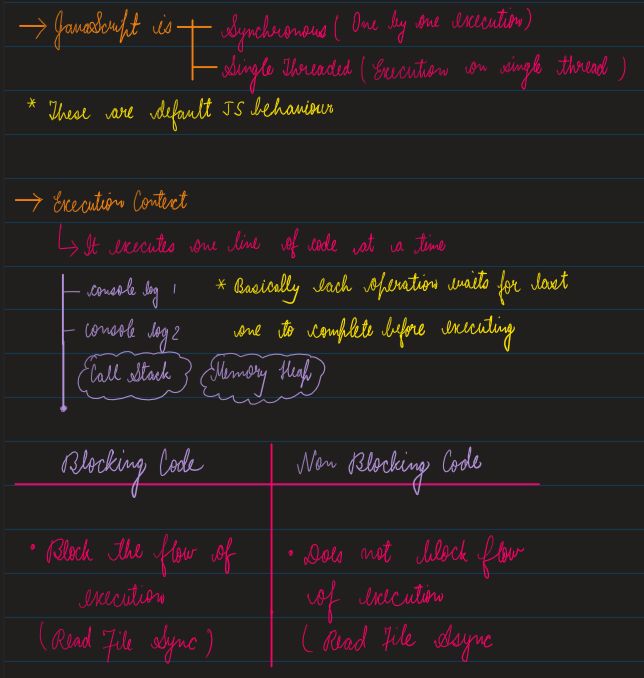 → JavaScript is
Synchronous ( One by one execution)
Single Threaded ( Execution on single thread )
* These are default JS behaviour
→ Execution Context
↳ It executes one line of code at a time
console log 1
* Basically each operation waits for last
console log 2
one to complete before executing
Call Stack
Memory Heap
Blocking Code
Non Blocking Code
• Block the flow of
execution
( Read File Sync )
• Does not block flow
of execution
( Read File Async